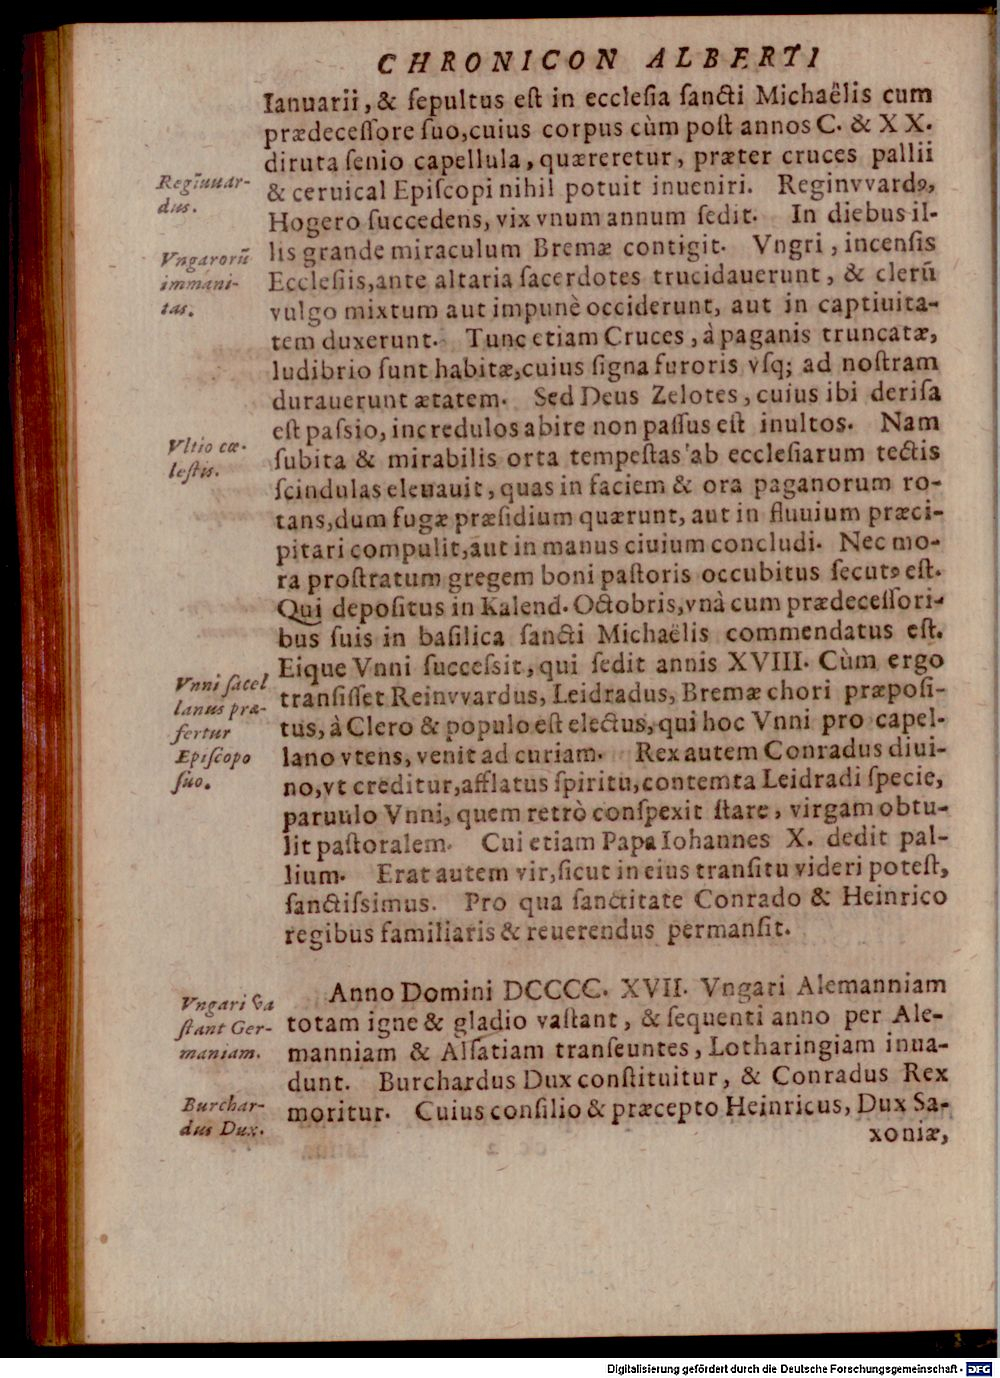 CHRONICON ALBERTI
Ianuarii, & ſepultus eſt in eccleſia ſancti Michaëlis cum
prædeceſſore ſuo,cuius corpus cùm poſt annos C. & XX.
diruta ſenio capellula, quæreretur, præter cruces pallii
& ceruical Epiſcopi nihil potuit inueniri. Reginvvardꝰ,
Hogero ſuccedens, vix vnum annum ſedit. In diebus il-
lis grande miraculum Bremæ contigit. Vngri, incenſis
Eccleſiis,ante altaria ſacerdotes trucidauerunt, & clerũ
vulgo mixtum aut impunè occiderunt, aut in captiuita-
tem duxerunt. Tunc etiam Cruces, à paganis truncatæ,
ludibrio ſunt habitæ,cuius ſigna furoris vſq; ad noſtram
durauerunt ætatem. Sed Deus Zelotes, cuius ibi deriſa
eſt paſsio, incredulos abire non paſſus eſt inultos. Nam
ſubita & mirabilis orta tempeſtas ab eccleſiarum tectis
ſcindulas eleuauit, quas in faciem & ora paganorum ro-
tans,dum fugæ præſidium quærunt, aut in fluuium præci-
pitari compulit,aut in manus ciuium concludi. Nec mo-
ra proſtratum gregem boni paſtoris occubitus ſecutꝰ eſt.
Qui depoſitus in Kalend. Octobris,vnà cum prædeceſſori-
bus ſuis in baſilica ſancti Michaëlis commendatus eſt.
Eique Vnni ſucceſsit, qui ſedit annis XVIII. Cùm ergo
tranſiſſet Reinvvardus, Leidradus, Bremæ chori præpoſi-
tus, à Clero & populo eſt electus, qui hoc Vnni pro capel-
lano vtens, venit ad curiam. Rex autem Conradus diui-
no,vt creditur,afflatus ſpiritu,contemta Leidradi ſpecie,
paruulo Vnni, quem retrò conſpexit ſtare, virgam obtu-
lit paſtoralem. Cui etiam Papa Iohannes X. dedit pal-
lium. Erat autem vir,ſicut in eius tranſitu videri poteſt,
ſanctiſsimus. Pro qua ſanctitate Conrado & Heinrico
regibus familiaris & reuerendus permanſit.
Anno Domini DCCCC. XVII. Vngari Alemanniam
totam igne & gladio vaſtant, & ſequenti anno per Ale-
manniam & Alſatiam tranſeuntes, Lotharingiam inua-
dunt. Burchardus Dux conſtituitur, & Conradus Rex
moritur. Cuius conſilio & præcepto Heinricus, Dux Sa-
xoniæ,
Regĩuuar-
dus.
Vngarorũ
immani-
tas.
Vltio cœ-
leſtis.
Vnni ſacel
lanus præ-
fertur
Epiſcopo
ſuo.
Vngari va
ſtant Ger-
maniam.
Burchar-
dus Dux.
Digitalisierung gefördert durch die Deutsche Forschungsgemeinschaft - DFG